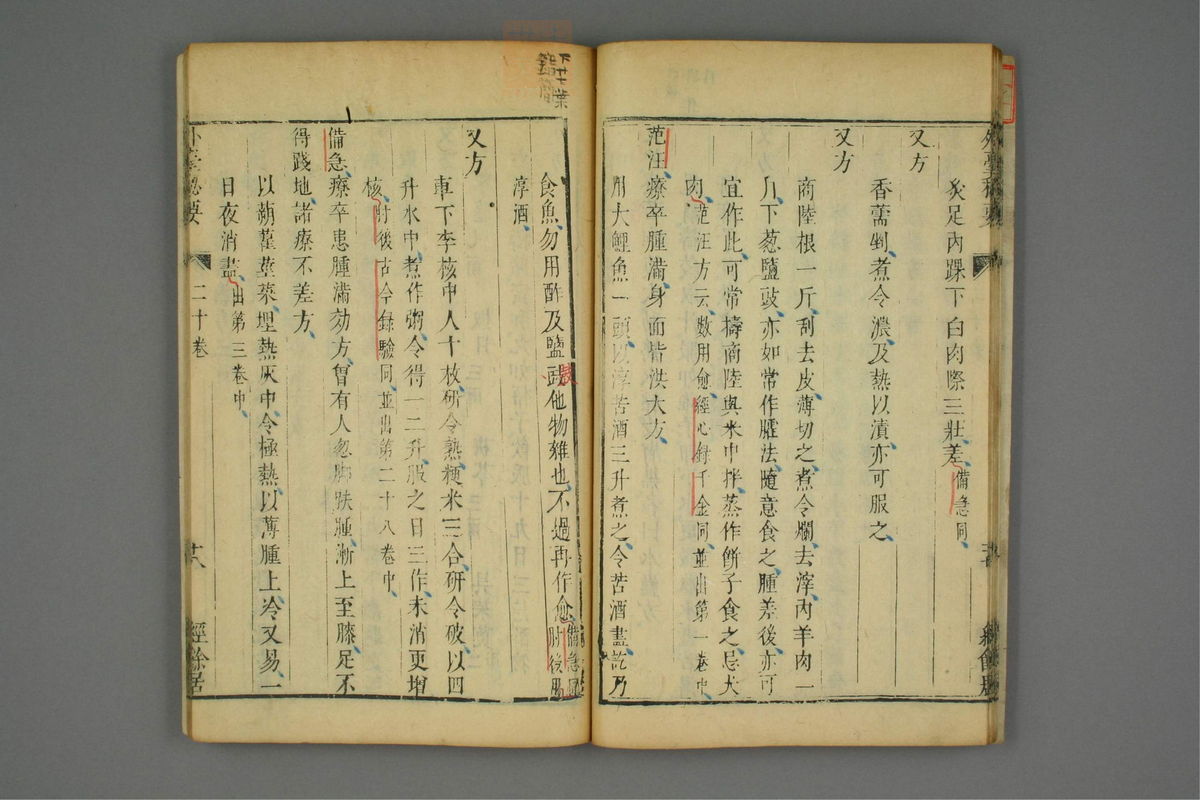 灸足內踝下白肉際三壯差備急同
又方
香薷剉煮令濃及熱以漬亦可服之
又方
商陸根一斤刮去皮薄切之煮令爛去滓內羊肉一
斤下葱鹽豉亦如常作臛法隨意食之腫差後亦可
宜作此可常擣商陸與米中拌蒸作餅子食之忌犬
肉范汪方云數用愈經心錄千金同並出第一卷中
范汪療卒腫滿身面皆洪大方
用大鯉魚一頭以淳苦酒三升煮之令苦酒盡訖乃
食魚勿用酢及鹽豉他物雜也不過再作愈備急同肘後用
淳酒
又方
車下李核中人十枚研令熟粳米三合研令破以四
升水中煮作粥令得一二升服之日三作未消更增
核肘後古今錄驗同並出第二十八卷中
備急療卒患腫滿効方曾有人忽脚趺腫漸上至膝足不
得踐地諸療不差方
以蒴藋莖葉埋熱灰中令極熱以薄腫上冷又易一
日夜消盡出第三卷中
外臺秘要
二十卷
經餘居